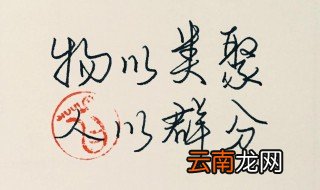 物以类聚
人以群分
云南龙网